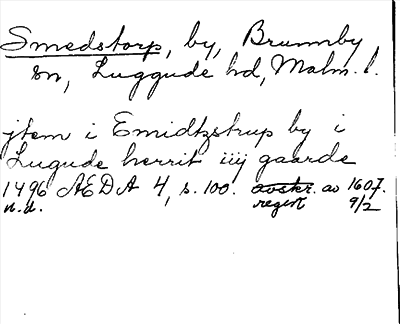 Smedstorp, by, Brunnby
sn, Luggude hd, Malm. l.
jtem i Smidtzstrup by i
Lugude herrit iiij gaarde
1496 AEDA 4, s. 100. avskr. av 1607.
n.d. regest 9/2